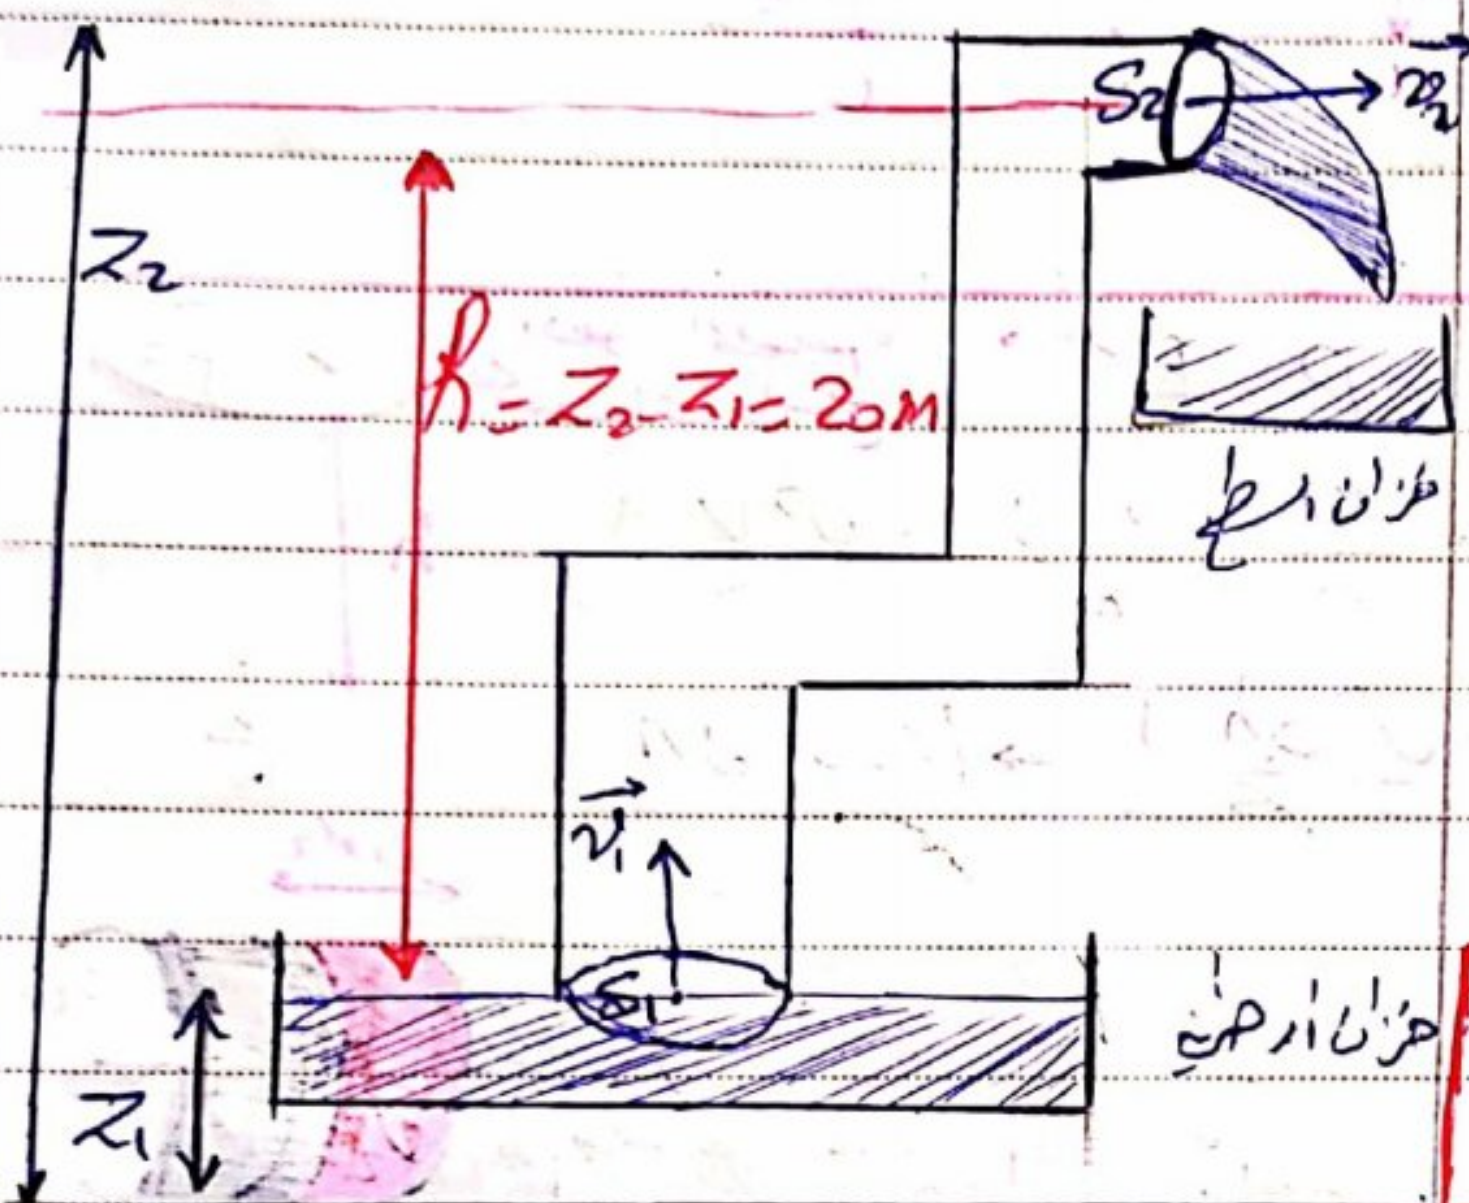 S₂ v⃗₂
Z₂
h = Z₂ - Z₁ = 20m
خزان السطح
v⃗₁
S₁
خزان أرضي
Z₁